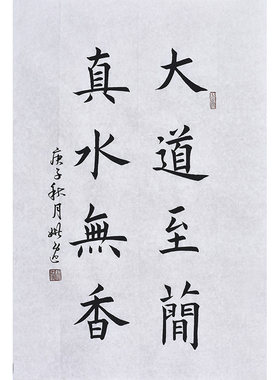 大道至簡
真水無香
庚子秋月